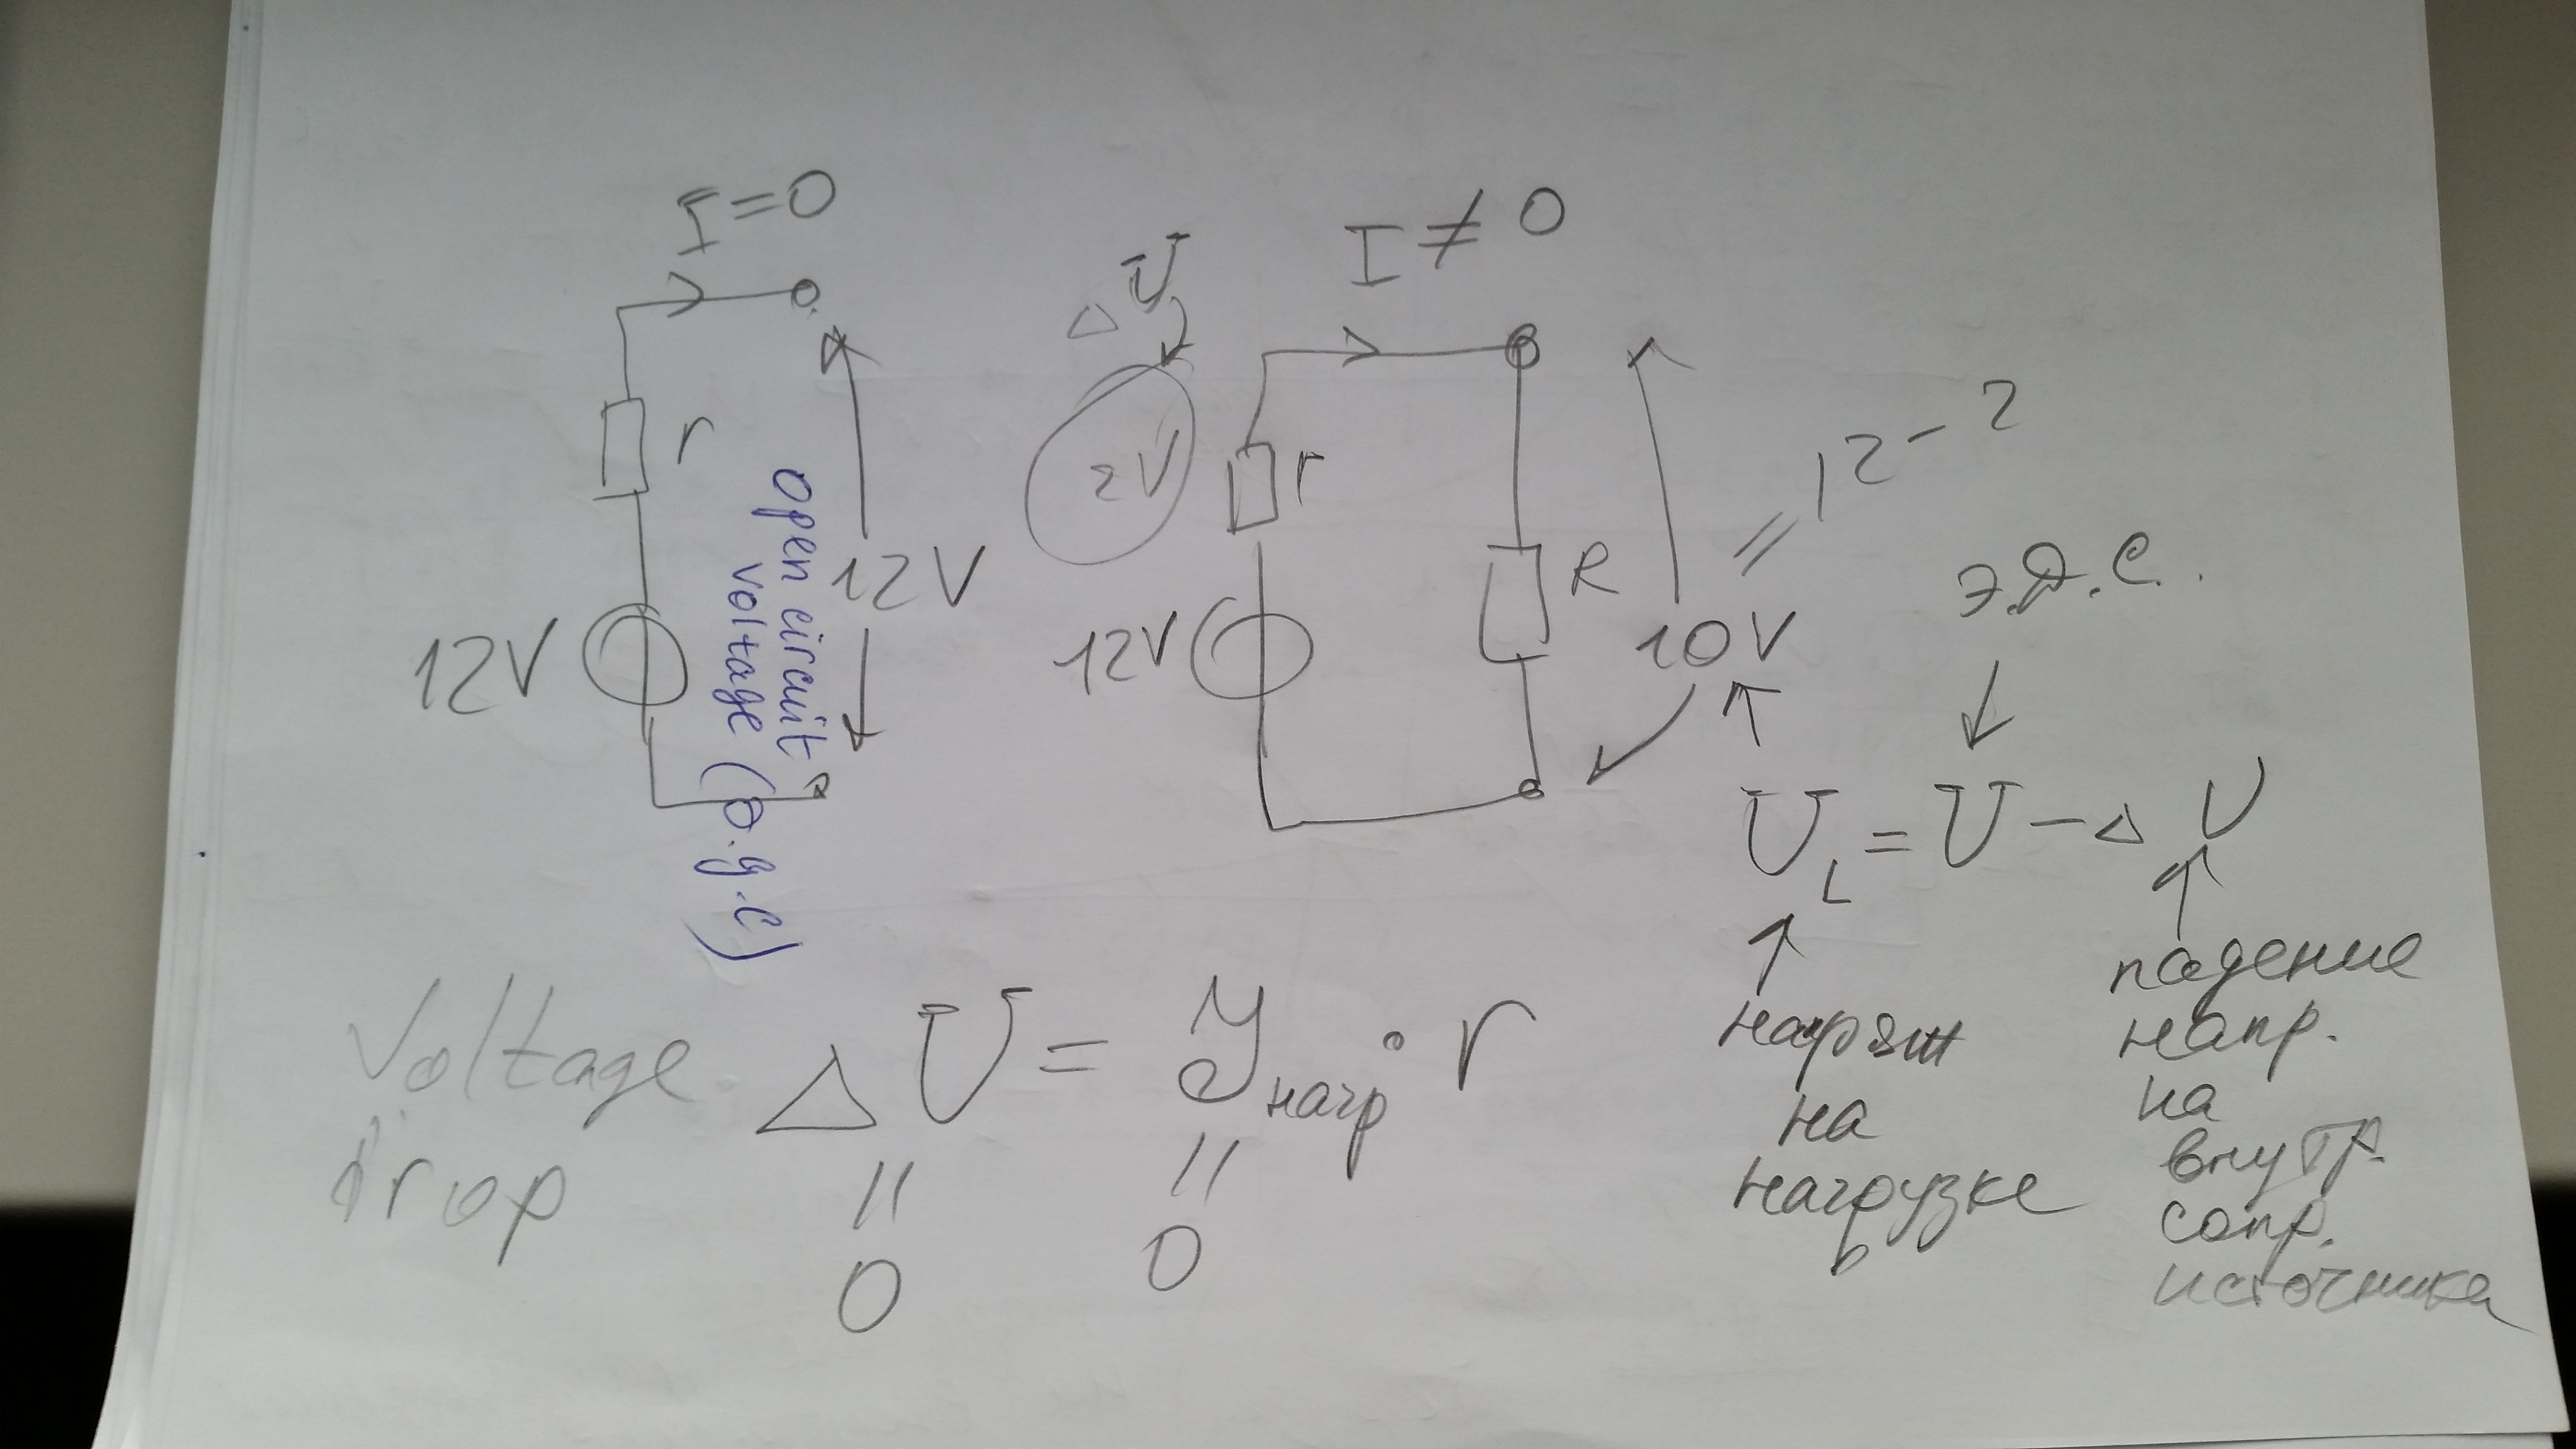 I=0
r
12V
open circuit
voltage (э.д.с)
12V
I ≠ 0
ΔU
2V
r
12V
R
10V
= 12-2
э.д.с.
U_L = U - ΔU
напряж
на
нагрузке
падение
напр.
на
внутр.
сопр.
источника
Voltage
drop
ΔU = I_нагр · r
= 0
= 0